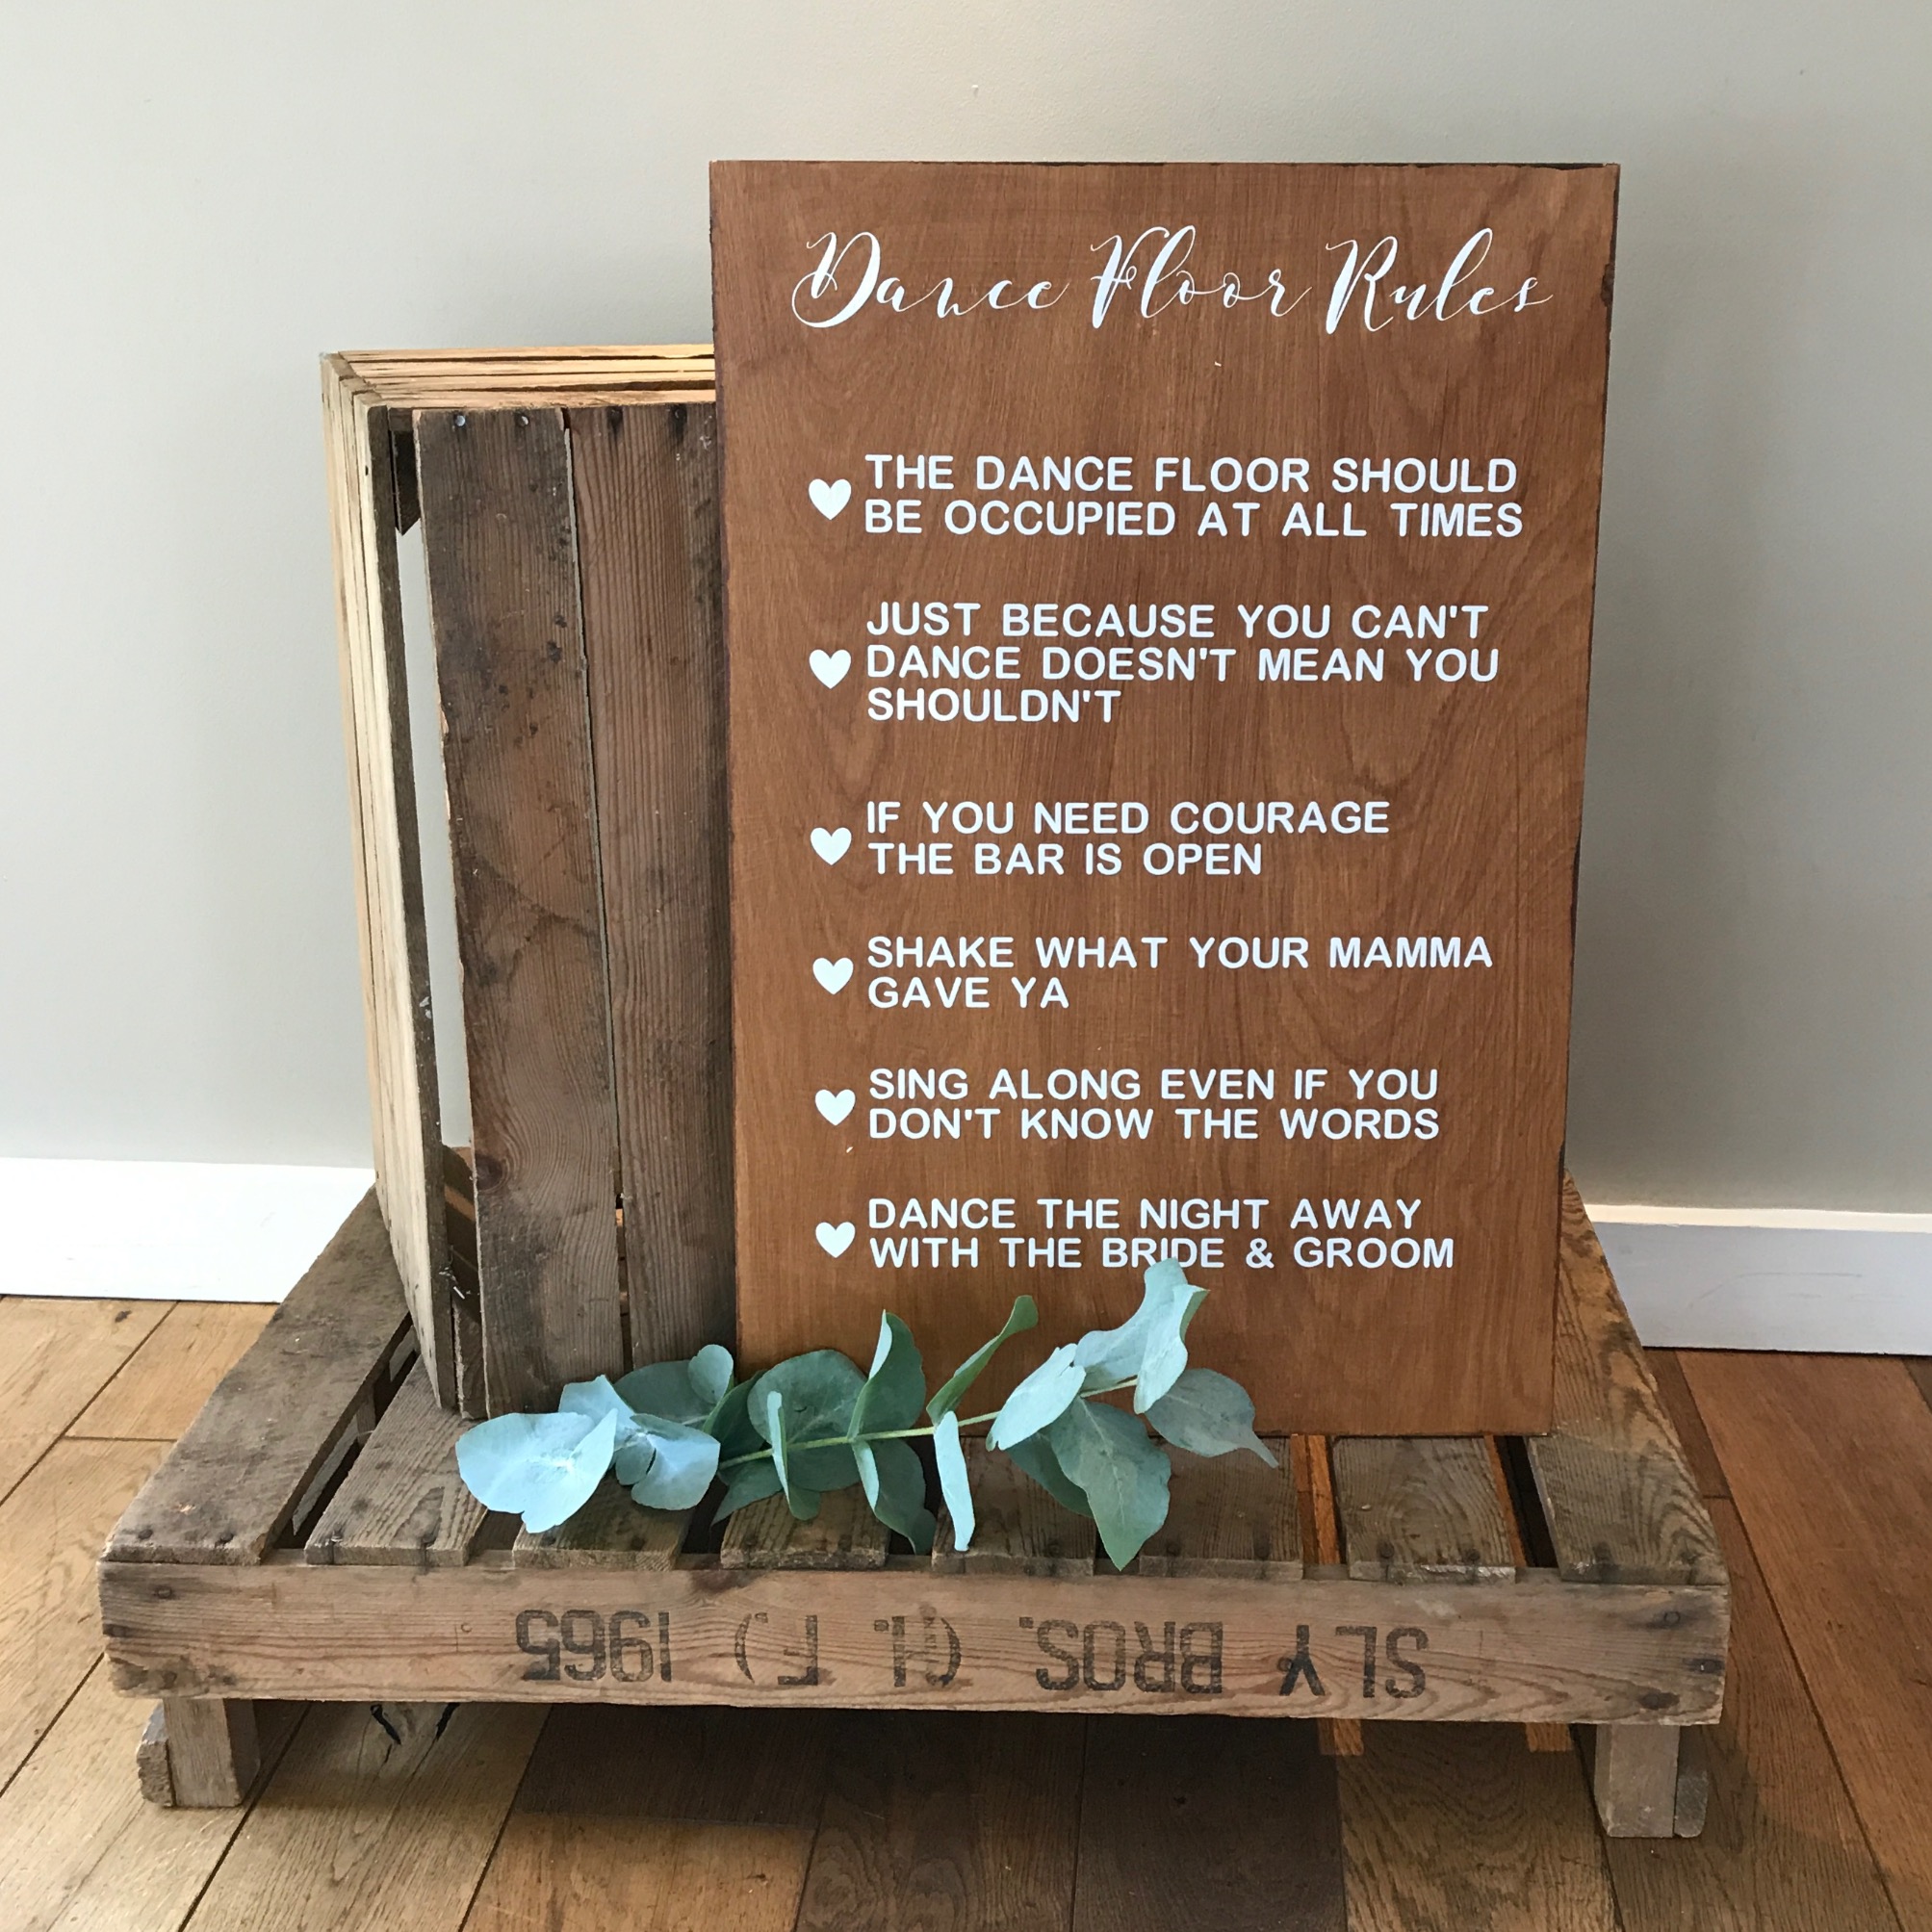 Dance Floor Rules
THE DANCE FLOOR SHOULD
BE OCCUPIED AT ALL TIMES
JUST BECAUSE YOU CAN'T
DANCE DOESN'T MEAN YOU
SHOULDN'T
IF YOU NEED COURAGE
THE BAR IS OPEN
SHAKE WHAT YOUR MAMMA
GAVE YA
SING ALONG EVEN IF YOU
DON'T KNOW THE WORDS
DANCE THE NIGHT AWAY
WITH THE BRIDE & GROOM
SLY BROS. (H. F.) 1965